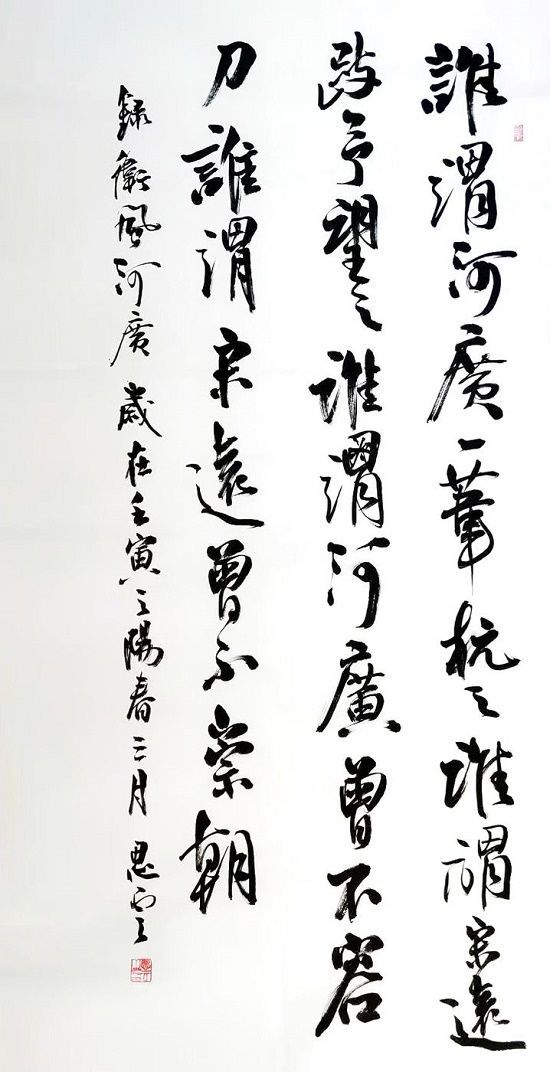 誰謂河廣一葦杭之誰謂宋遠
跂予望之誰謂河廣曾不容
刀誰謂宋遠曾不崇朝
錄衛風河廣 歲在壬寅之陽春三月 思雲